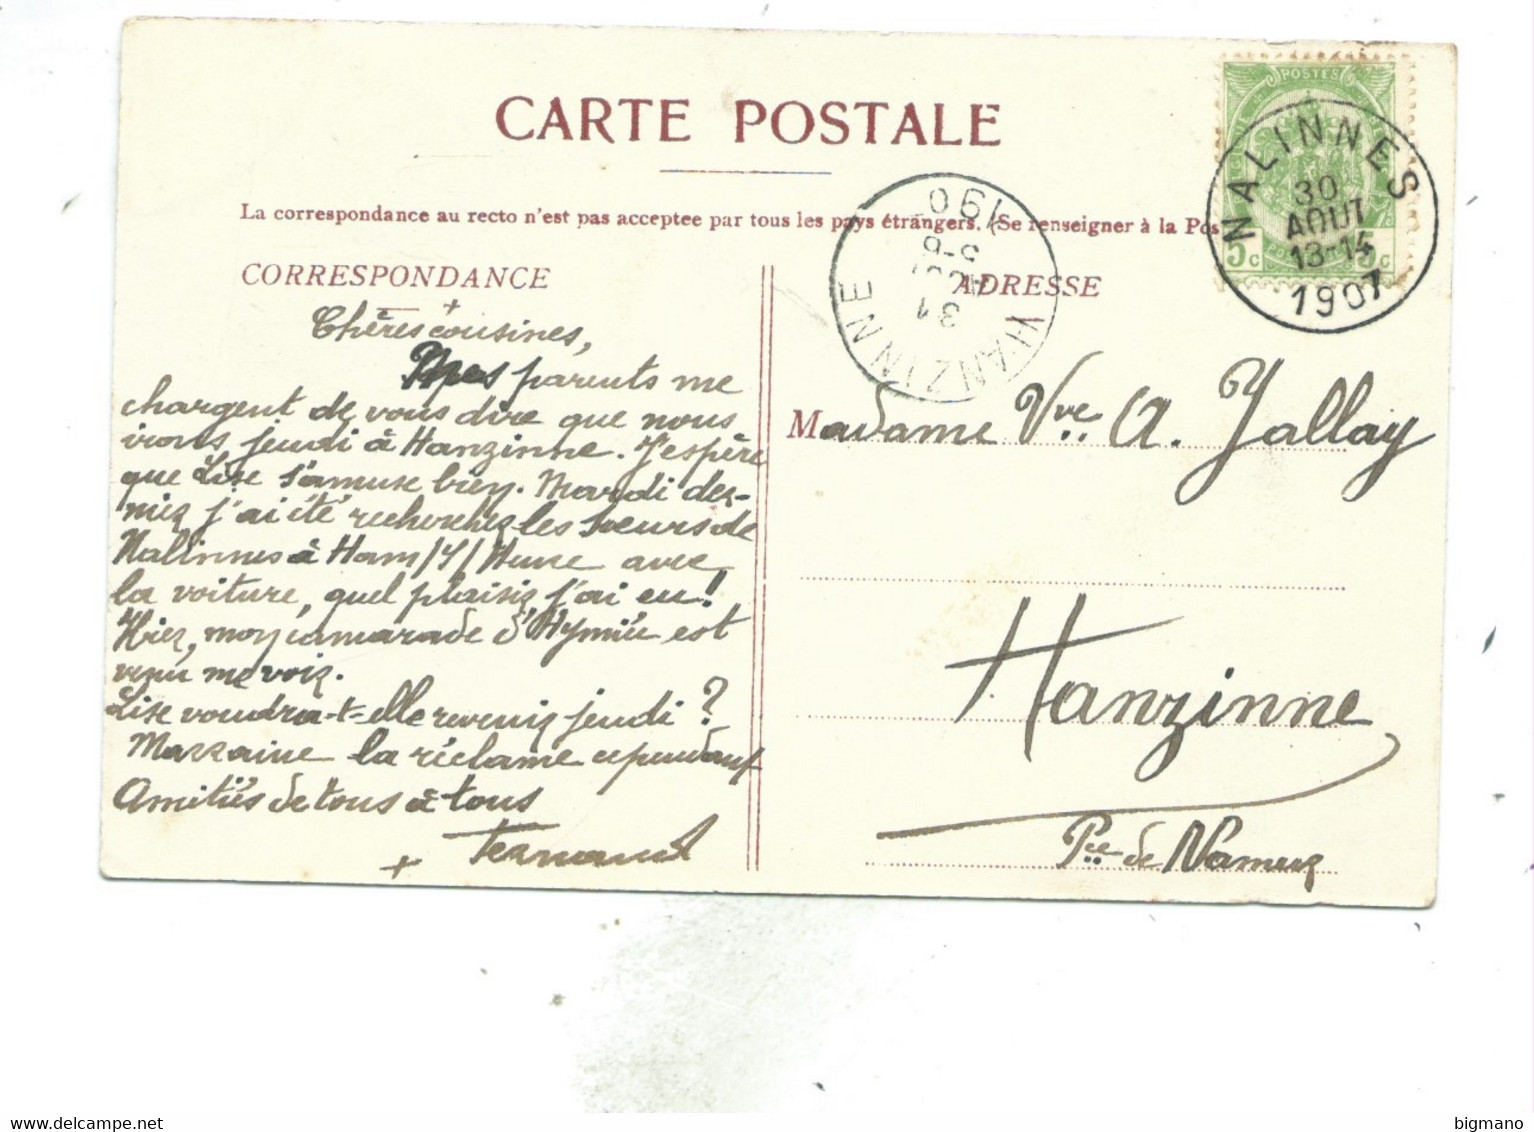 CARTE POSTALE
La correspondance au recto n'est pas acceptee par tous les pays étrangers. (Se renseigner à la Pos
CORRESPONDANCE
Chères cousines,
Mes parents me
chargent de vous dire que nous
irons jeudi à Hanzinne. J'espère
que Lise s'amuse bien. Mardi der-
nier j'ai été rechercher les sœurs de
Nalinnes à Ham/s/Heure avec
la voiture, quel plaisir j'ai eu!
Hier, mon camarade d'Hymiée est
venu me voir.
Lise voudra-t-elle revenir jeudi?
Marraine la réclame cependant
Amitiés de tous à tous
Fernand
ADRESSE
Madame Vve A. Jallay
Hanzinne
Pce de Namur
POSTES
5c 5c
NALINNES
30
AOUT
13-14
1907
HANZINNE
31
AOUT
190
bigmano